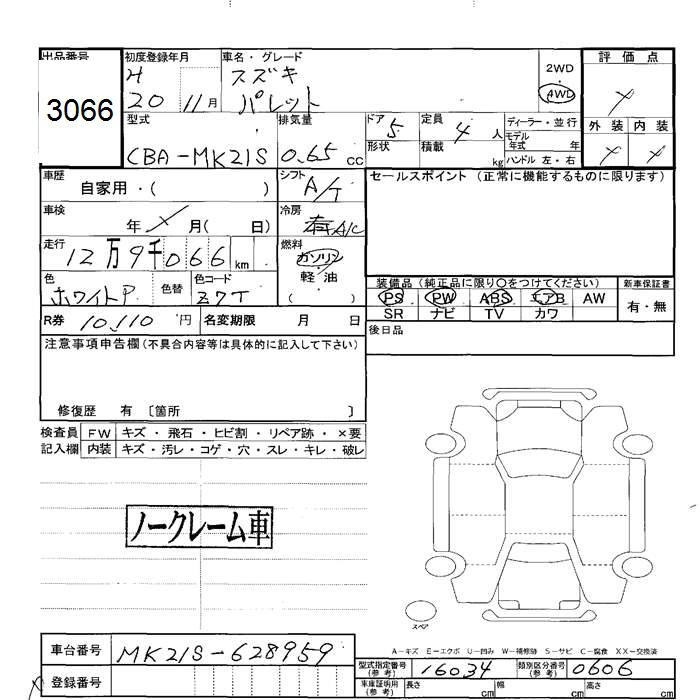 出品番号
3066
初度登録年月
H
20 11月
車名・グレード
スズキ
パレット
2WD
4WD
評価点
外装 内装
型式
CBA-MK21S
排気量
0.65 cc
ドア 5
形状
定員 4 人
積載 kg
ディーラー・並行
モデル年式 年
ハンドル 左・右
車歴
自家用・( )
シフト
A/T
セールスポイント (正常に機能するものに限ります)
車検
年 月( 日)
冷房
有 A/C
走行
12万9千066 km
燃料
ガソリン
軽・油
( )
色
ホワイトP
色替
色コード
Z7T
装備品 (純正品に限り○をつけてください)
新車保証書
PS PW ABS エアB AW
SR ナビ TV カワ
有・無
R券 10,110 円
名変期限 月 日
後日品
注意事項申告欄(不具合内容等は具体的に記入して下さい)
修復歴 有 〔箇所 〕
検査員 FW キズ・飛石・ヒビ割・リペア跡・×要
記入欄 内装 キズ・汚レ・コゲ・穴・スレ・キレ・破レ
ノークレーム車
スペア
A-キズ E-エクボ U-凹み W-補修跡 S-サビ C-腐食 XX-交換済
車台番号 MK21S-628959
登録番号
型式指定番号(参考) 16034
類別区分番号(参考) 0606
車庫証明用(参考) 長さ cm 幅 cm 高さ cm